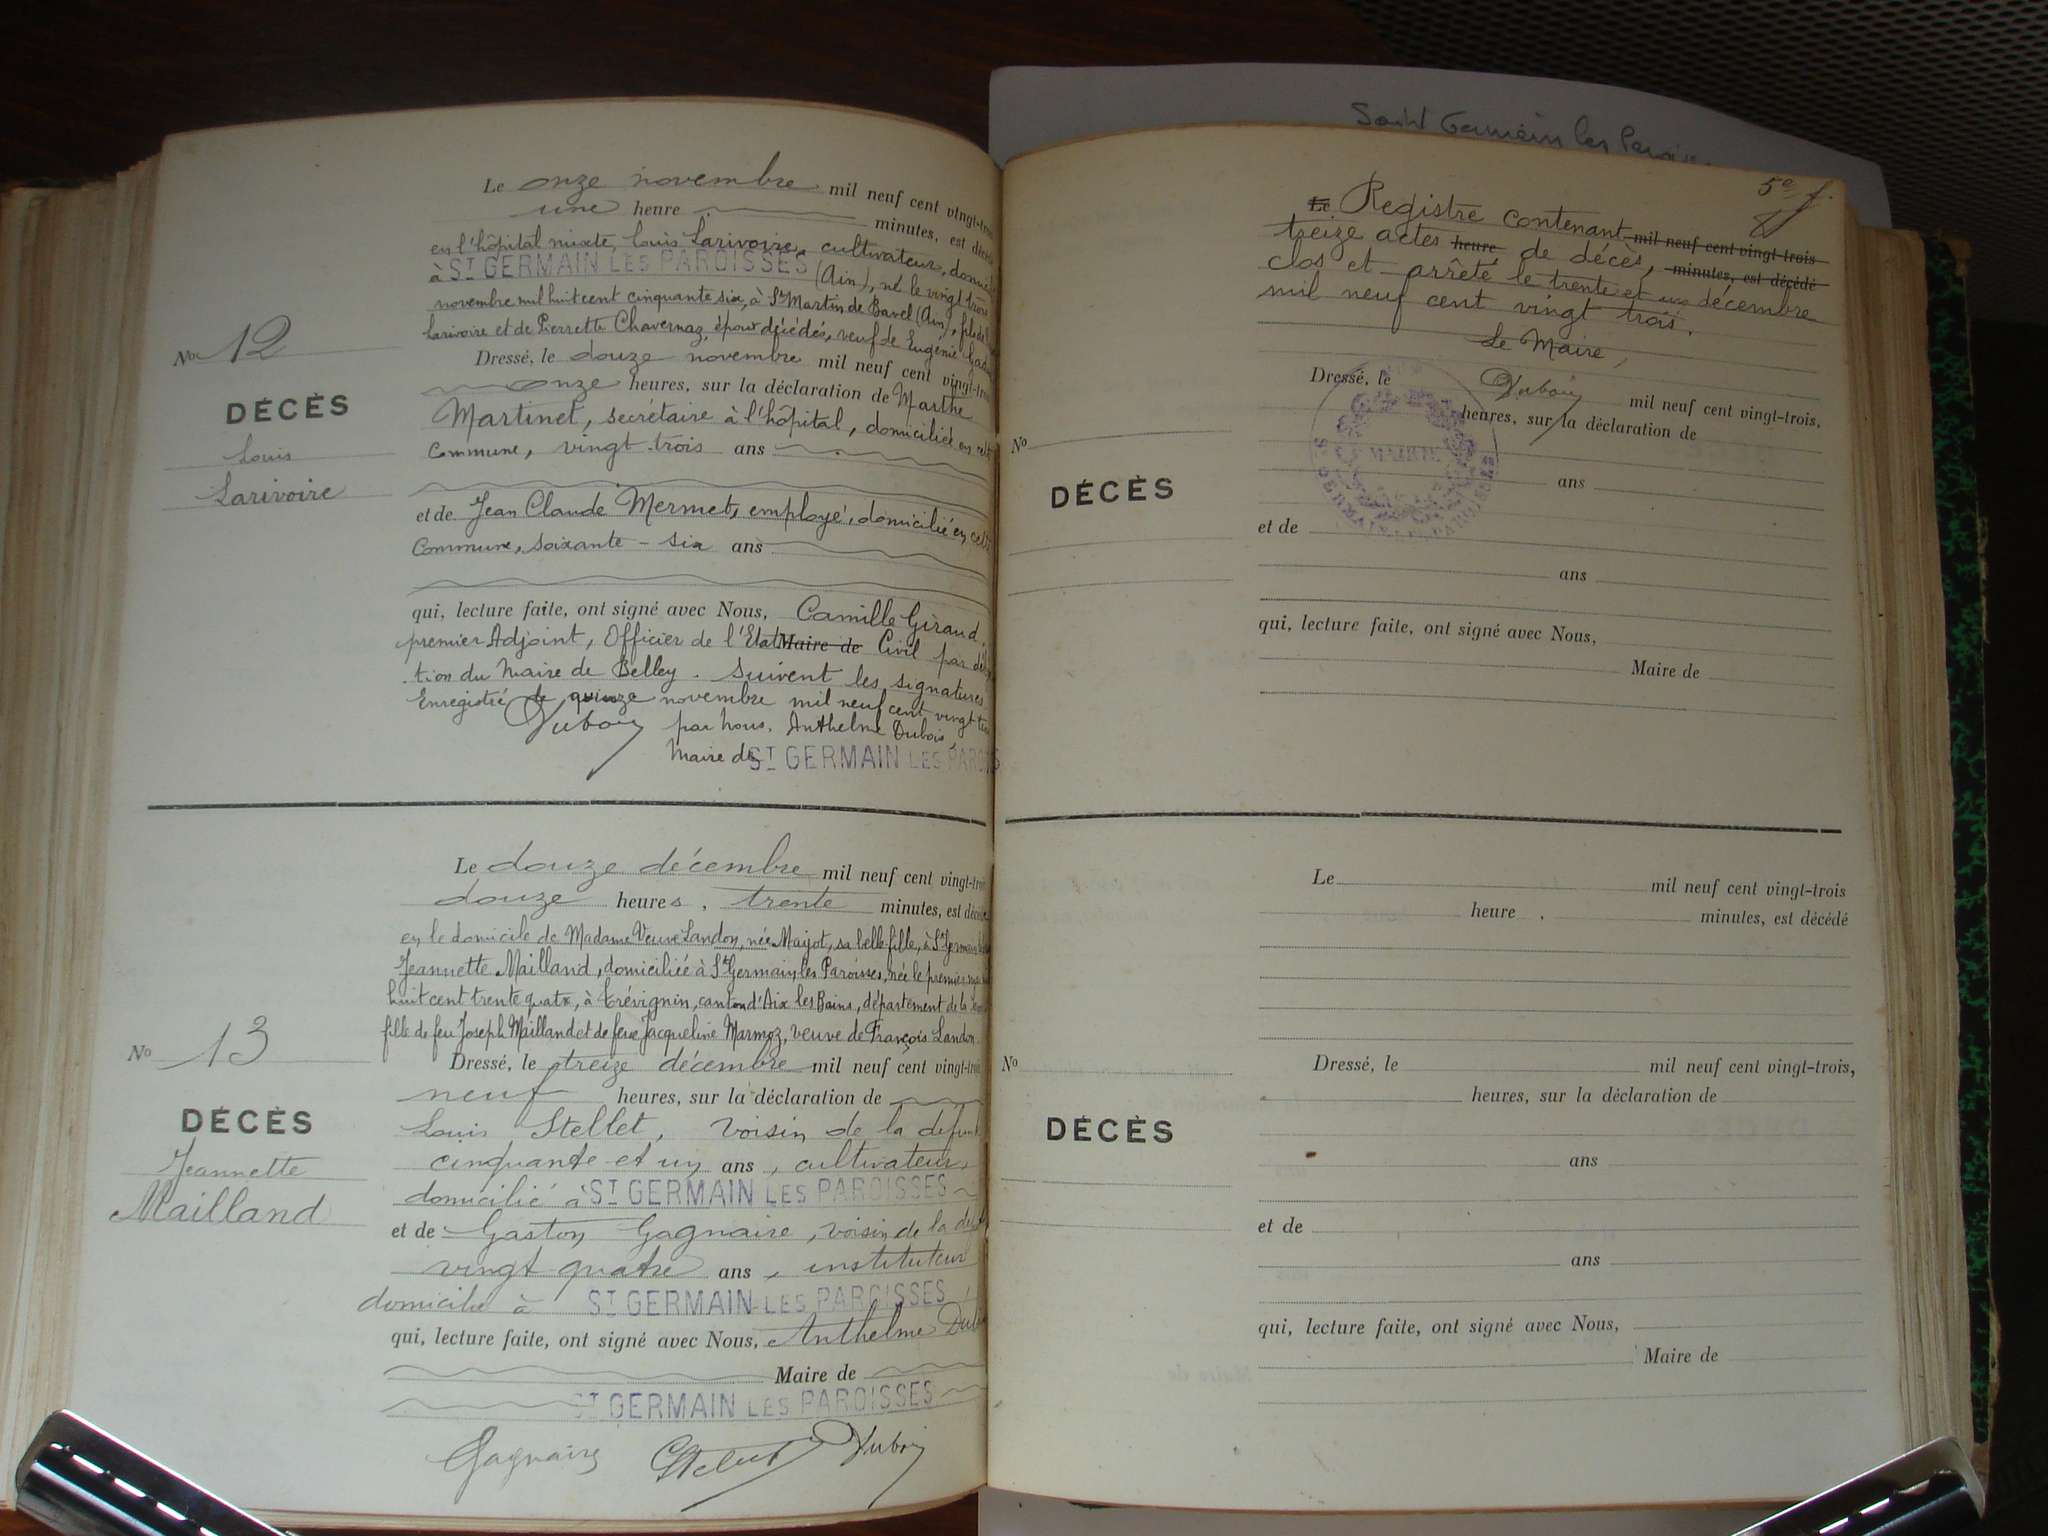 Saint Germain les Parois
Le onze novembre mil neuf cent vingt-trois
une heure minutes, est décédé
en l'hôpital mixte, Louis Larivoire, cultivateur, domicilié
à ST GERMAIN LES PAROISSES (Ain), né le vingt trois
novembre mil huit cent cinquante six, à St Martin de Bavel (Ain), fils de
Larivoire et de Pierrette Chavernaz, époux décédés, veuf de Eugénie
No 12
Dressé, le douze novembre mil neuf cent vingt-trois
onze heures, sur la déclaration de Marthe
DÉCÈS
Martinet, secrétaire à l'hôpital, domiciliée en cette
Louis
commune, vingt trois ans
Larivoire
et de Jean Claude Mermet, employé, domicilié en cette
commune, soixante-six ans
qui, lecture faite, ont signé avec Nous, Camille Giraud,
premier Adjoint, Officier de l'Etat Maire de Civil par déléga
tion du Maire de Belley. Suivent les signatures.
Enregistré le quinze novembre mil neuf cent vingt trois
Dubois par nous, Anthelme Dubois,
Maire de ST GERMAIN LES PAROISSES
Le douze décembre mil neuf cent vingt-trois
douze heures, trente minutes, est décédée
en le domicile de Madame Veuve Landon, née Mayot, sa belle-fille, à St Germain
Jeannette Mailland, domiciliée à St Germain les Paroisses, née le premier
huit cent trente quatre, à Trévignin, canton d'Aix les Bains, département de la
fille de feu Joseph Mailland et de feue Jacqueline Marmoz, veuve de François Landon.
No 13
Dressé, le treize décembre mil neuf cent vingt-trois
neuf heures, sur la déclaration de
DÉCÈS
Louis Stellet, voisin de la défunte
Jeannette
cinquante et un ans, cultivateur,
Mailland
domicilié à ST GERMAIN LES PAROISSES
et de Gaston Gagnaire, voisin de la
vingt quatre ans, instituteur
domicilié à ST GERMAIN LES PAROISSES
qui, lecture faite, ont signé avec Nous, Anthelme Dubois
Maire de
ST GERMAIN LES PAROISSES
Gagnaire Stellet Dubois
5e f.
Le Registre contenant mil neuf cent vingt-trois
treize actes heure, de décès, minutes, est décédé
clos et arrêté le trente et un décembre
mil neuf cent vingt trois.
Le Maire,
Dressé, le Dubois mil neuf cent vingt-trois,
heures, sur la déclaration de
No
MAIRIE
ST GERMAIN LES PAROISSES
DÉCÈS
ans
et de
ans
qui, lecture faite, ont signé avec Nous,
Maire de
Le mil neuf cent vingt-trois
heure , minutes, est décédé
No
Dressé, le mil neuf cent vingt-trois,
heures, sur la déclaration de
DÉCÈS
ans
et de
ans
qui, lecture faite, ont signé avec Nous,
Maire de